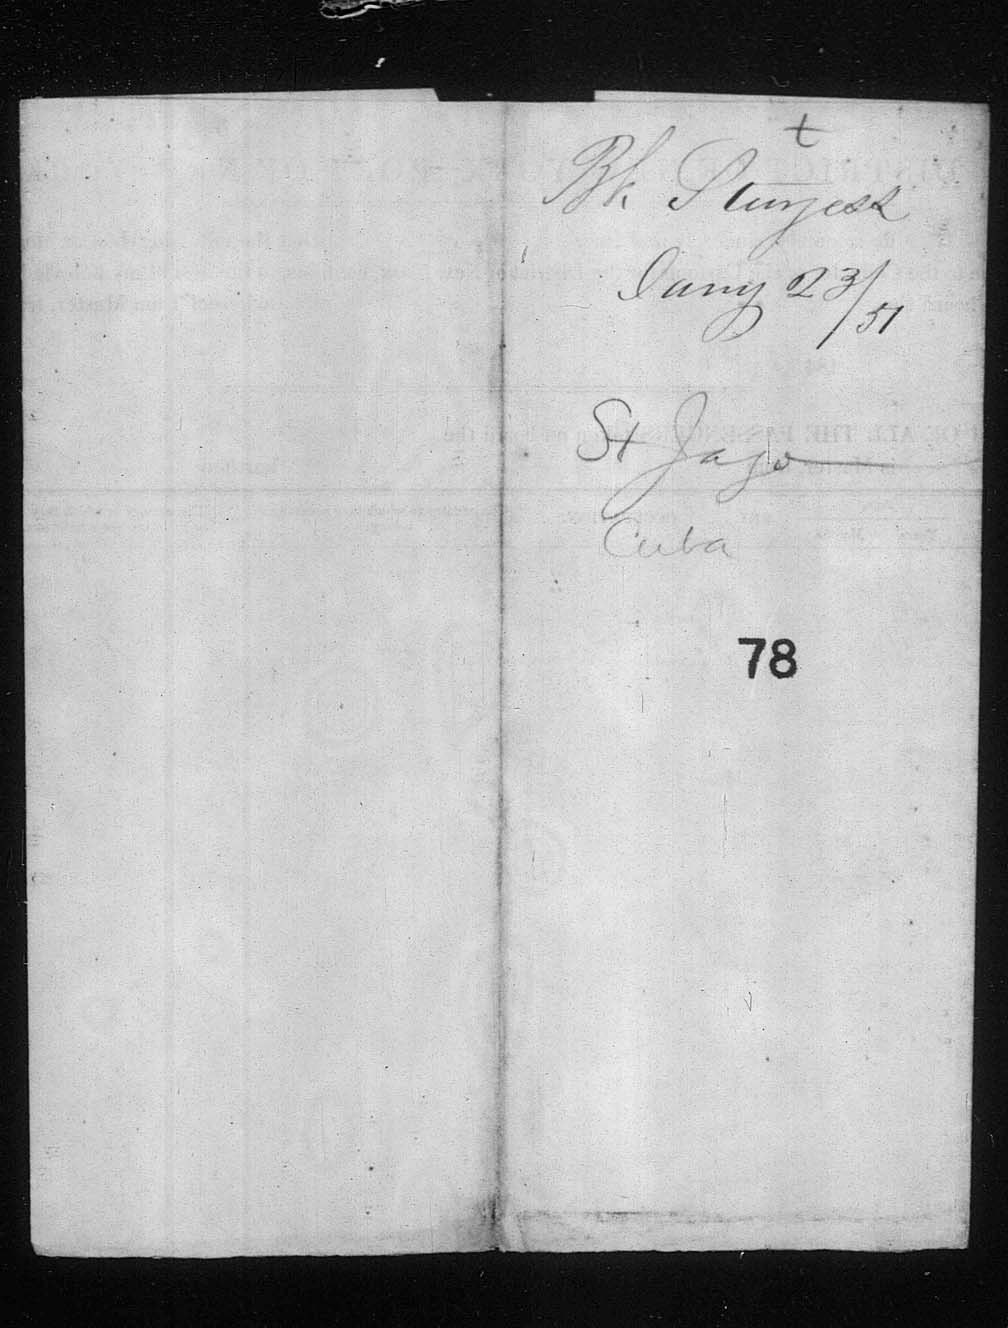 t
Bk Sturgess
Jany 23/51
St Jago
Cuba
78